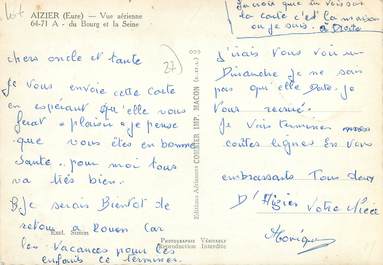 AIZIER (Eure) — Vue aérienne
64-71 A - du Bourg et la Seine
la croix que tu vois sur
la carte c'est la maison
ou je suis. à Droite
27)
chers oncle et tante
Je vous envoie cette carte
en espérant qu'elle vous
ferat "plaisir" je pense
que vous êtes en bonne
Santé. pour moi tous
va très bien.
B, je serais Bientot de
retour a Rouen car
les Vacances pour les
enfants ce terminer.
Exel. Simon
Editions Aériennes COMBIER IMP. MACON (S.-&-L.)
PHOTOGRAPHIE VÉRITABLE
Reproduction Interdite
j'irais vous voir un
Dimanche je ne sai
pas qu'elle Date. je
Vous
Je vais terminer mes
courtes lignes En vous
embrassants Tous deux
D'Aizier Votre Nièce
Monique